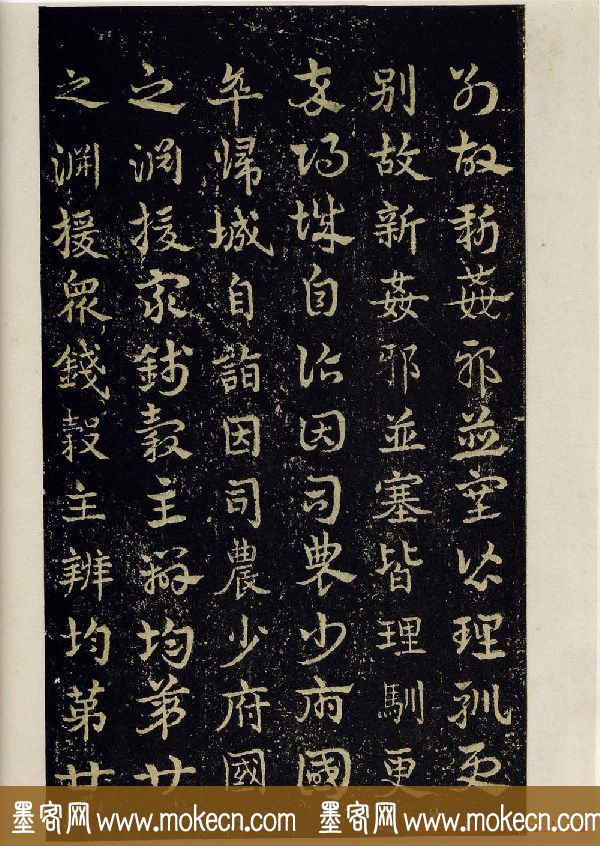 别故新姦邪並塞皆理馴更
别故新姦邪並塞皆理馴更
卒歸城自詣因司農少府國
卒歸城自詣因司農少府國
之淵援衆錢穀主辨均苐廿
之淵援衆錢穀主辨均苐廿
墨客网 www.mokecn.com 墨客网 www.mokecn.com